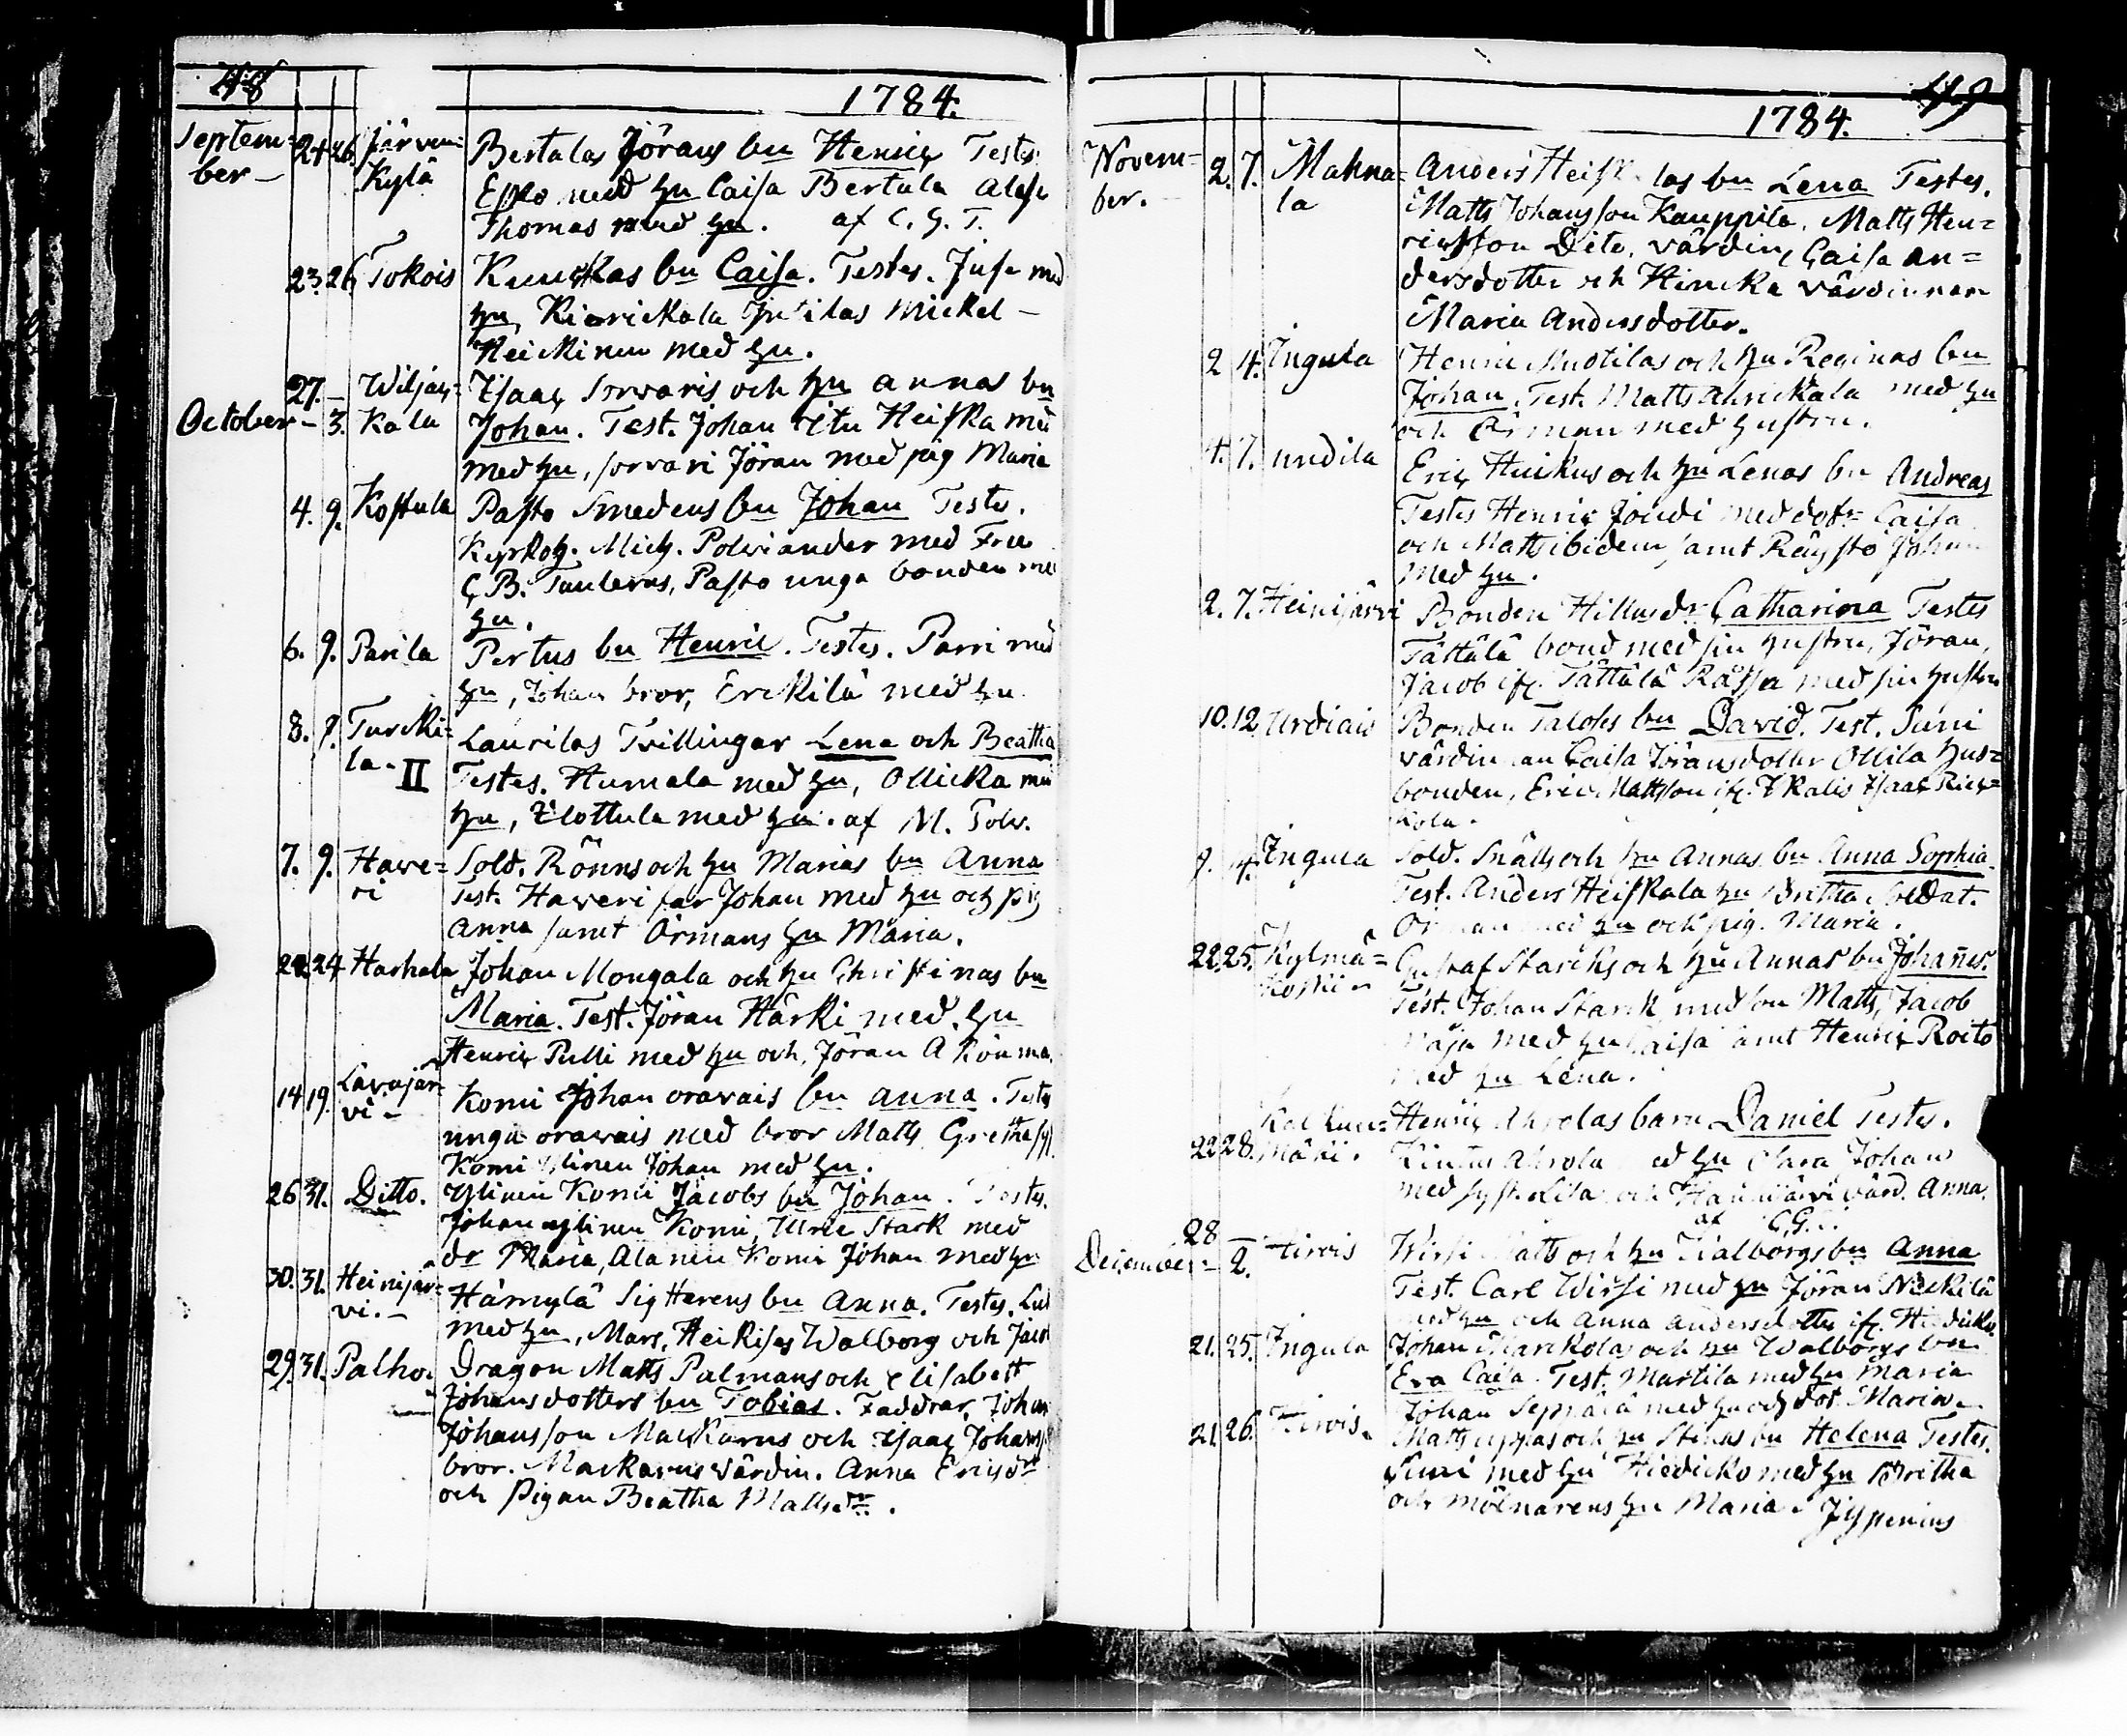 48
1784.
Septem=
ber –
24. 26. Järven=
Kylä
Bertulas Jörans bn Henric Testes
Esko med hu Caisa Bertula
Thomas med hu. af C. G. T.
23. 26. Tokois
Kuuskas bn Caisa. Testes. Jusa med
hu, Kierickala Mickel –
Heickinen med hu.
27. – Wiljak=
Isaac Sorvaris och hu Annas bn
October – 3. kala
Johan. Test. Johan Heiska
med hu, Sorvari Jöran med pig Maria
4. 9. Kostula
Pasto Smedens bn Johan Testes.
Kyrkoh. Mich. Polviander med Fru
C. B. Taulerus, Pasto unga bonden med
hu.
6. 9. Parila
Pertus bn Henric. Testes. Parri med
hu, Johan bror, Erckilä med hu
8. 9. Turcki=
la. II
Laurilas Tvillingar Lena och Beatha
Testes. Humala med hu, Ollicka med
hu, Elottula med hu. af M. Polv.
7. 9. Hawe=
ri
Sold. Rönns och hu Marias bn Anna
Test. Haweri far Johan med hu och pig
Anna samt Örmans hu Maria.
22. 24 Harhala
Johan Mongala och hu Christinas bn
Maria. Test. Jöran Härki med hu
Henric Pulli med hu och Jöran
14 19. Lavajär
vi –
Komi Johan oravais bn Anna. Testes
unga oravais med bror Matts Gretha
Komi Ylinen Johan med hu.
26 31. Ditto.
Ylinen Komi Jacobs bn Johan. Testes.
Johan Ylinen Komi, Ulric Stark med
dr Maria, Alanen Komi Johan med hu
30. 31. Heinijär=
vi. –
Hämylä Sigtarens bn Anna. Testes.
med hu, Mars. Heikises Walborg och Jacob
29. 31. Palho.
Dragon Matts Palmans och Elisabett
Johansdotters bn Tobias. Faddrar, Johan
Johansson Mackarus och Isaac Johans
bror. Mackarus värdin. Anna Ericsdr
och Pigan Beatha Mattsdr.
49
1784.
Novem=
ber.
2. 7. Mahna=
la
Anders Heiskalas bn Lena Testes.
Matts Johansson Kauppila. Matts Hen=
ricsson Dito, värdin Caisa An=
dersdotter och Hincka värdinnan
Maria Andersdotter.
2 4. Ingula
Henric Mustilas och hu Reginas bn
Johan. Test. Matts Ahrickala med hu
och Örman med hustru.
4. 7. undila
Eric Huikus och hu Lenas bn Andreas
Testes Henric Joudi med dotr Caisa
och Matts ibidem, samt Räystö Johan
med hu.
2. 7. Heinijärvi
Bonden Hillus dr Catharina Testes
Tättälä bond med sin hustru, Jöran,
Jacob Tättälä Råssa med sin hustru
10. 12. Urdiais
Bonden Taloses bn David. Test. Suni
värdinnan Caisa Jöransdotter Ollila hus=
bonden, Eric Mattsson Isaac
kola.
9. 14. Ingula
Sold. Snälls och hu Annas bn Anna Sophia.
Test. Anders Heiskala hu Britha Soldat.
Örman med hu och pig. Maria.
22. 25. Kylmä=
koski –
Gustaf Starcks och hu Annas bn Johannes.
Test. Johan Starck med son Matts, Jacob
med hu Caisa samt Henric Roito
med hu Lena.
22 28. mäki.
Henric Ahrolas barn Daniel Testes.
Ahrola med hu Clara Johan
med syst. Lisa och värd. Anna.
af C. G. T.
28
December – 2. Hirvis
Wirsi Matts och hu Walborgs bn Anna
Test. Carl Wirsi med hu Jöran Nickilä
med hu och Anna Andersdotter
21. 25. Ingula
Johan Marckolas och hu Walborgs bn
Eva Caisa. Test. Martila med hu Maria
Johan Seppälä med hu och dot. Maria.
21. 26. Hirvis.
Matts uppas och hu Stinas bn Helena Testes.
Suni med hu Hiedicko med hu Britha
och mölnarens hu Maria.